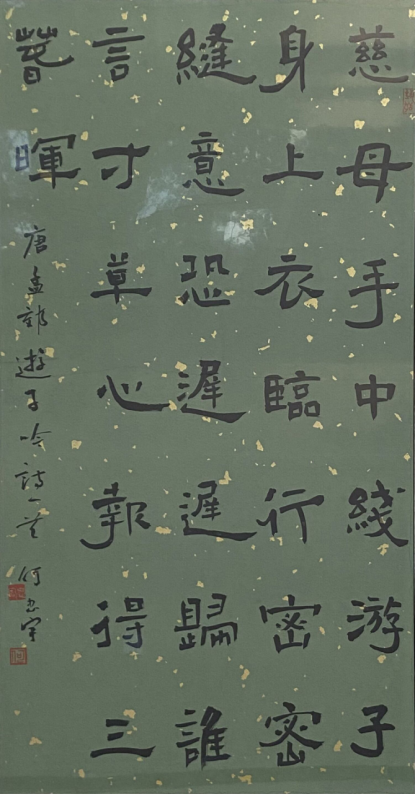 慈母手中綫游子
身上衣臨行密密
縫意恐遲遲歸誰
言寸草心報得三
萅暉
唐孟郊遊子吟詩一首 何